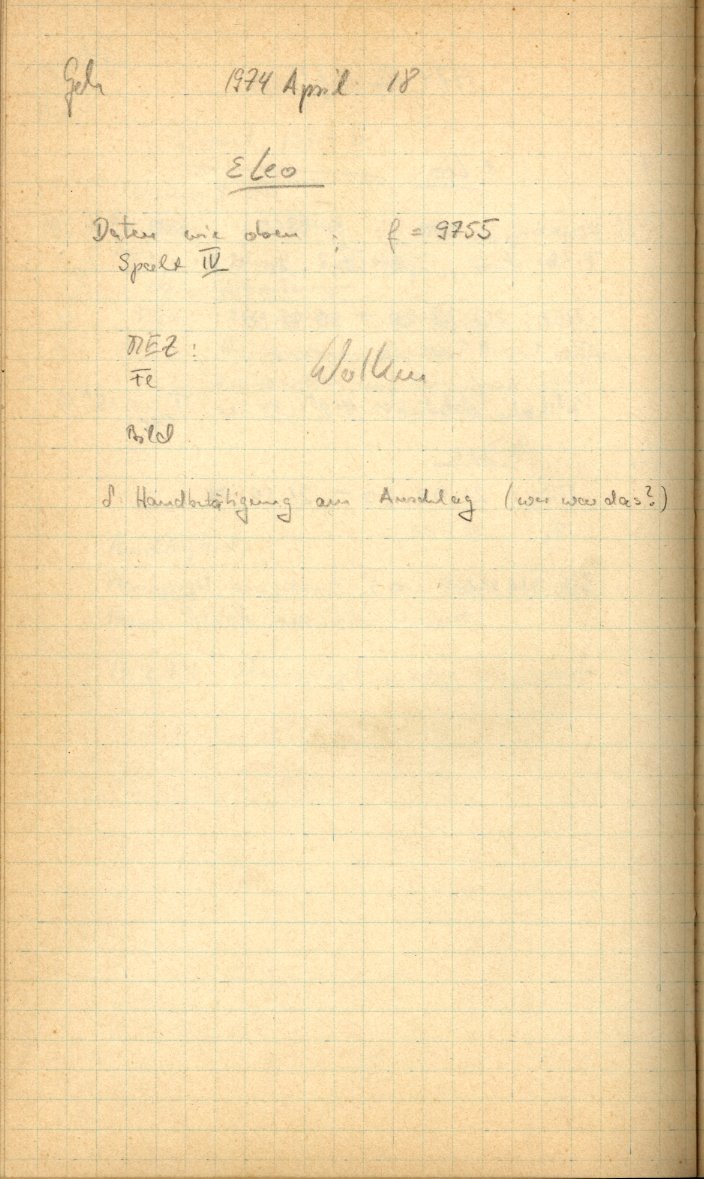 Geh 1974 April 18
ε Leo
Daten wie oben ; f = 9755
Spalt IV
MEZ :
Fe Wolken
Bild
δ Handbetätigung am Anschlag (wer war das?)